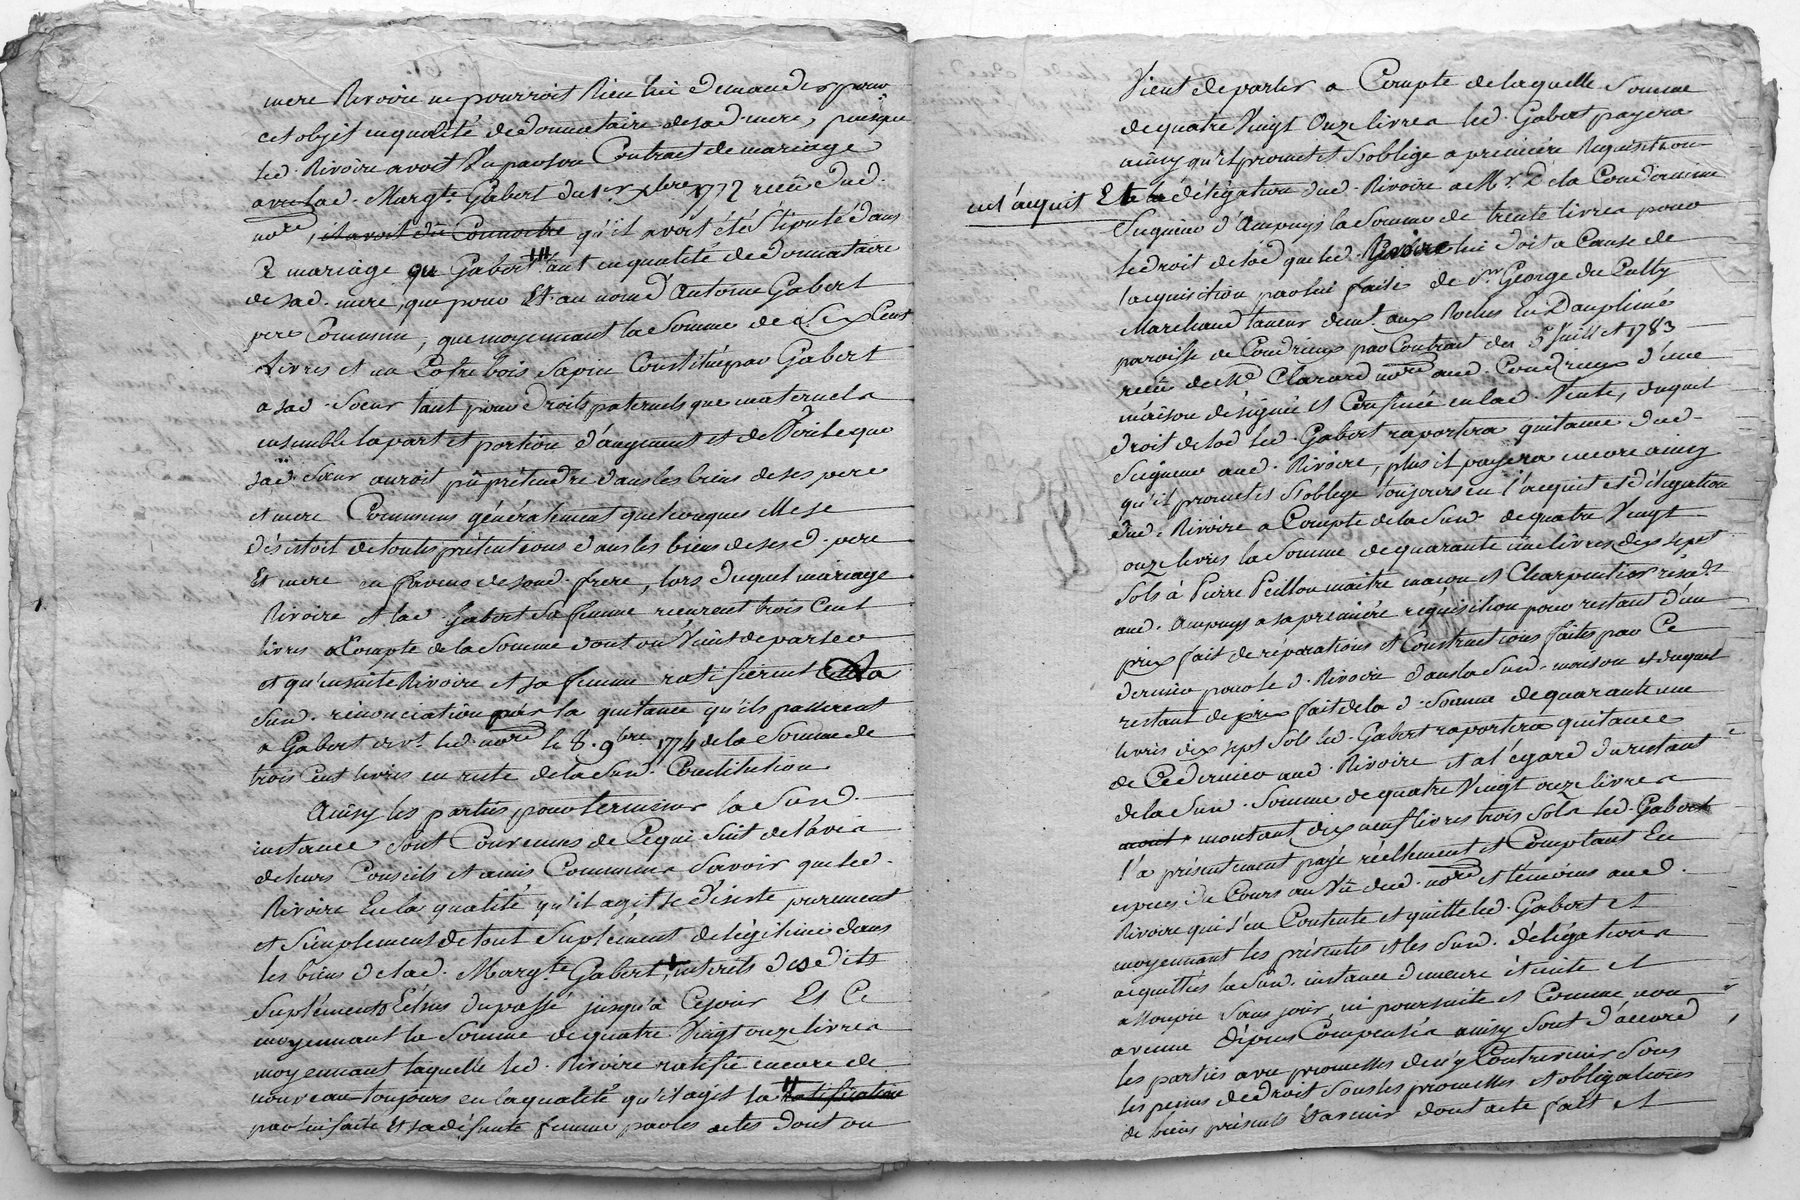 mere Rivoire ne pourroit Rien lui demander pour
cet objet en qualité de donnataire de sad. mere, puisque
led. Rivoire avoit Vu par son Contrat de mariage
avec lad. Margte. Gabert du 1er. xbre 1772 recû dud.
nore, il avoit dû Connoitre qu'il avoit été Stipulé dans
mariage que Gabert tant en qualité de donnataire
de sad. mere, que pour Et au nom d'Antoine Gabert
pere Commun, que moyennant la Somme de Six Cent
Livres et un Cofre bois Sapin Constitué par Gabert
a sad. Soeur tant pour droits paternels que maternels
ensemble la part et portion d'augment et de Voile que
sad. Sœur auroit pû prétendre dans les biens de ses pere
et mere Communs généralement quelconques Elle se
désistoit de toutes prétentions dans les biens de sesd. pere
Et mere en faveur de sond. frere, lors duquel mariage
Rivoire et lad. Gabert sa femme recurent trois Cent
livres a Compte de la Somme dont on Vient de parler
et qu'ensuite Rivoire et sa femme ratifierent la
Susd. rénonciation par la quitance qu'ils passerent
a Gabert dvt. led. nore le 8. 9bre. 1774 de la Somme de
trois Cent livres en reste de la Susd. Constitution
Ainsy les parties pour terminer la Susd.
instance sont Convenues de Ce qui Suit de l'avis
de leurs Conseils et amis Communs Savoir que led.
Rivoire En la qualité qu'il agit se désiste purement
et Simplement de tout Suplément de légitime dans
les biens de lad. Margte Gabert, interets desdits
Supléments Echus du passé jusqu'à Cejour Et Ce
moyennant la Somme de quatre Vingt onze livres
moyennant laquelle led. Rivoire ratifie encore de
nouveau toujours en la qualité qu'il agit la ratification
par lui faite Et sa défunte femme par les actes dont on
Vient de parler a Compte de laquelle Somme
de quatre Vingt Onze livres led. Gabert payera
ainsy qu'il promet et S'oblige a premiére Réquisition
en l'acquit Et la délégation dud. Rivoire a Mr. D la Condamine
Seigneur d'Ampuys la Somme de trente livres pour
le droit de lod que led. Rivoire lui doit a Cause de
l'acquisition par lui faite de Sr. George du Pully
Marchand taneur demt. aux Roches en Dauphiné
paroisse de Condrieux par Contrat du 5 Juillet 1783
recû de Me Clavard nore aud. Condrieux d'une
maison désignée et Confinée en lad. Vente, duquel
droit de lod led. Gabert raportera quitance dud.
Seigneur aud. Rivoire, plus il payera encore ainsy
qu'il promet et S'oblige toujours en l'acquit et délégation
dud. Rivoire a Compte de la Susd. de quatre Vingt
onze livres la Somme de quarante une livres dix sept
Sols à Pierre Peillon maitre maçon et Charpentier résidt
aud. Ampuys a sa premiére réquisition pour restant d'un
prix fait de réparations et Constructions faites par Ce
dernier pour led. Rivoire dans la Susd. maison et duquel
restant de prix fait de la d. Somme de quarante une
livres dix sept Sols led. Gabert raportera quitance
de Ce dernier aud. Rivoire et a l'égard du restant
de la Susd. Somme de quatre Vingt onze livres
mont montant dix neuf livres trois Sols led. Gabert
l'a présentement payé réellement et Comptant En
especes de Cours au Vû dud. nore et témoins aud.
Rivoire qui s'en Contente et quitte led. Gabert et
moyennant les présentes et les Susd. délégations
acquittées la Susd. instance demeure éteinte et
assoupie Sans jour, ni poursuite et Comme non
avenue dépens Compensés ainsy Sont d'accord
les parties avec promesses de n'y Contrevenir Sous
les peines de droit Sous les promesses et obligations
de biens présents Et avenir dont acte fait et